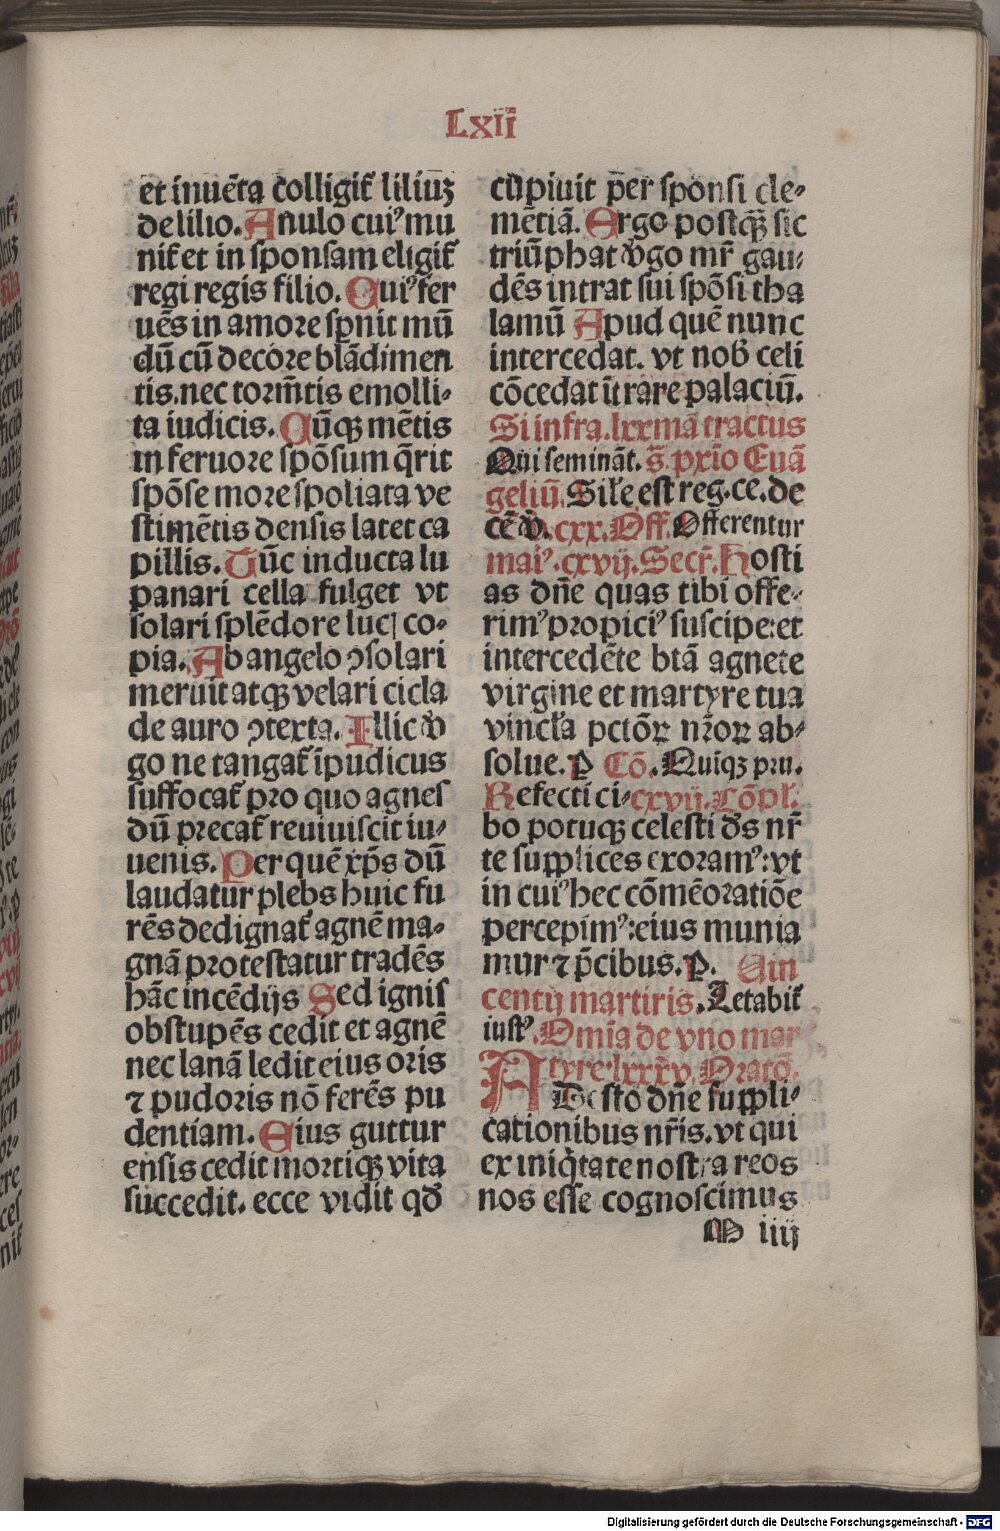 LXII
et inuēta colligit᷑ liliuꝫ
de lilio. Anulo cuiꝰ mu
nit᷑ et in sponsam eligit᷑
regi regis filio. Cuiꝰ fer
uēs in amore spnit mū
dū cū decore blādimen
tis.nec torm̄tis emolli⸗
ta iudicis. Cūqꝫ mētis
in feruore spōsum q̄rit
spōse more spoliata ve
stimētis densis latet ca
pillis. Tūc inducta lu
panari cella fulget vt
solari splēdore luci co⸗
pia. Ab angelo ꝯsolari
meruit atqꝫ velari cicla
de auro ꝯtexta. Illic v̄
go ne tangat᷑ īpudicus
suffocat᷑ pro quo agnes
dū precat᷑ reuiuiscit iu⸗
uenis. Per quē xp̄s dū
laudatur plebs huic fu
rēs dedignat᷑ agnē ma⸗
gnā protestatur tradēs
hāc incēdijs Sed ignis
obstupēs cedit et agnē
nec lanā ledit eius oris
⁊ pudoris nō ferēs pu
dentiam. Eius guttur
ensis cedit mortiqꝫ vita
succedit. ecce vidit qđ
cūpiuit per sponsi cle⸗
mētiā. Ergo postqꝫ sic
triūphat v̄go mr̄ gau⸗
dēs intrat sui spōsi tha
lamū Apud quē nunc
intercedat. vt nob̄ celi
cōcedat ītrare palaciū.
Si infra.lxxmā tractus
Qui semināt. s̄. pxīo Euā
geliū. Sile est reg.ce.de
cē v̄. cxx. Off. Offerentur
maiꝰ.cxvij. Secr̄. Hosti
as dn̄e quas tibi offe⸗
rimꝰ propiciꝰ suscipe:et
intercedēte btā agnete
virgine et martyre tua
vincła pctōꝝ nr̄oꝝ ab⸗
solue. P Cō. Quiqꝫ pru.
Refecti ci⸗cxvij. Cōpł.
bo potuqꝫ celesti ds̄ nr̄
te supplices exoramꝰ:vt
in cuiꝰ hec cōmēoratiōe
percepimꝰ:eius munia
mur ⁊ p̄cibus. P. Uin
centij martiris. Letabit᷑
iustꝰ. Omīa de vno mar
tyre.lxxxv. Oratō.
ADesto dn̄e suppli⸗
cationibus nr̄is. vt qui
ex iniq̄tate nostra reos
nos esse cognoscimus
M iiij
Digitalisierung gefördert durch die Deutsche Forschungsgemeinschaft - DFG